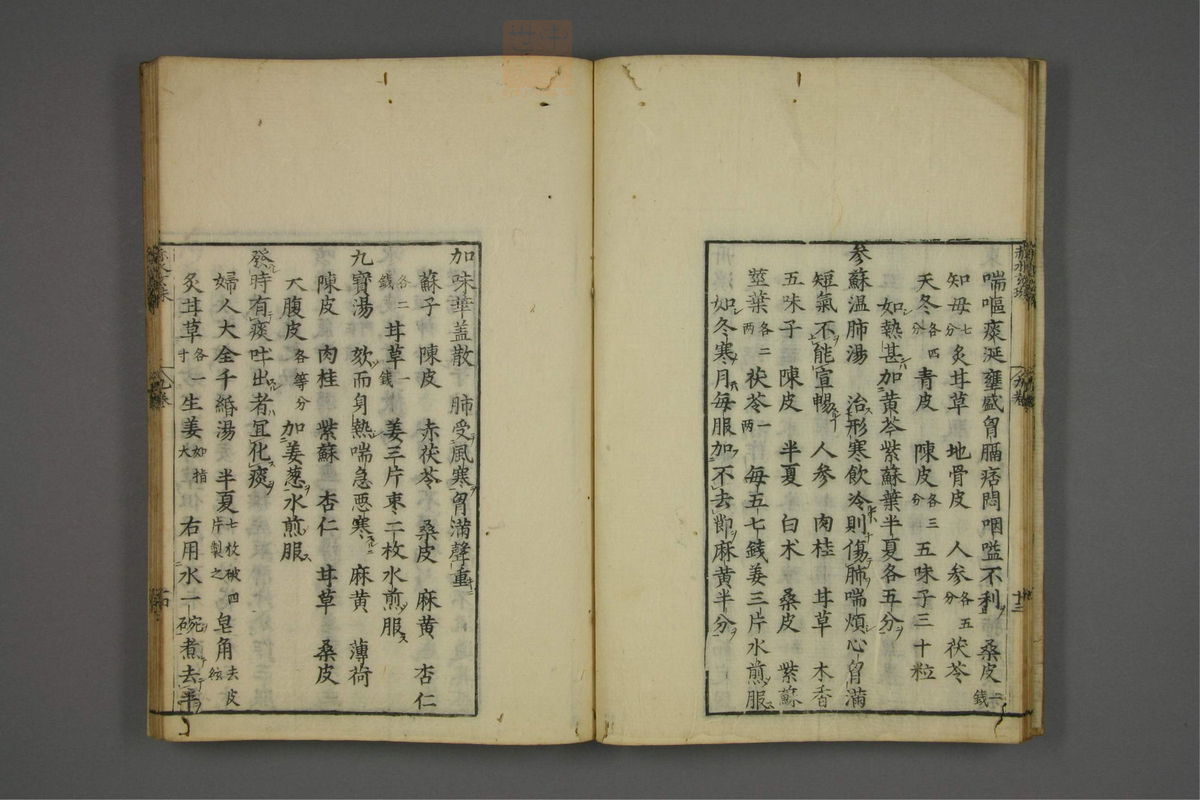 喘嘔痰涎壅盛胷膈痞悶咽嗌不利 桑皮二錢
知母七分 炙甘草 地骨皮 人參各五分 茯苓
天冬各四分 青皮 陳皮各三分 五味子三十粒
如熱甚加黃芩紫蘇葉半夏各五分
參蘇溫肺湯 治形寒飲冷則傷肺喘煩心胷滿
短氣不能宣暢 人參 肉桂 甘草 木香
五味子 陳皮 半夏 白术 桑皮 紫蘇
莖葉各二兩 茯苓一兩 每五七錢姜三片水煎服
如冬寒月每服加不去節麻黃半分
加味華盖散 肺受風寒胷滿聲重
蘇子 陳皮 赤茯苓 桑皮 麻黃 杏仁
各二錢 甘草一錢 姜三片棗二枚水煎服
九寶湯 欬而身熱喘急惡寒 麻黃 薄荷
陳皮 肉桂 紫蘇 杏仁 甘草 桑皮
大腹皮各等分 加姜葱水煎服
發時有痰吐出者宜化痰
婦人大全千緡湯 半夏七枚破四片製之 皂角去皮絃
炙甘草各一寸 生姜如指大 右用水一碗煮去半
九卷
十三